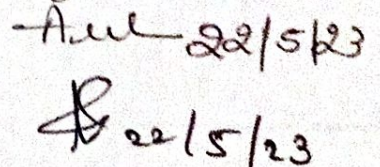 22/5/23
22/5/23